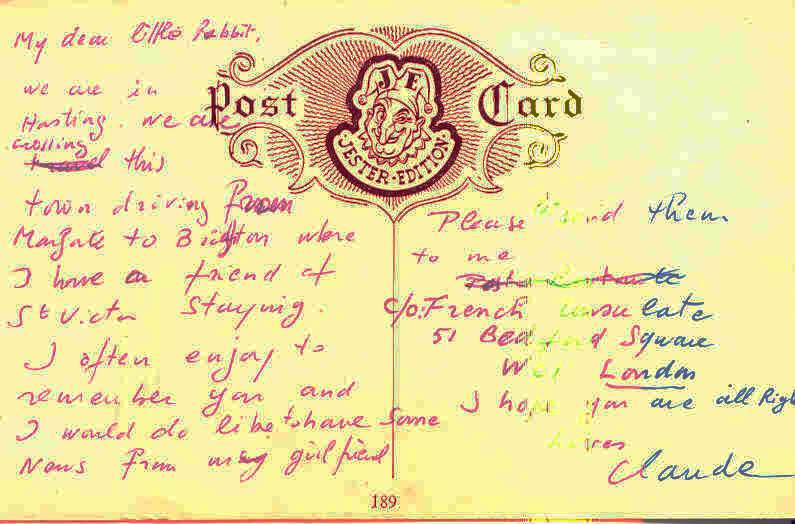 Post Card
J E
JESTER-EDITION
My dear little Rabbit,
we are in
Hasting. we are
crossing
this
town driving from
Margate to Brighton where
I have a friend of
St Victor Staying.
I often enjoy to
remember you and
I would do like to have Some
News from my girl friend
Please send them
to me
c/o: French Consulate
51 Bedford Square
London
I hope you are all Right
Claude
189